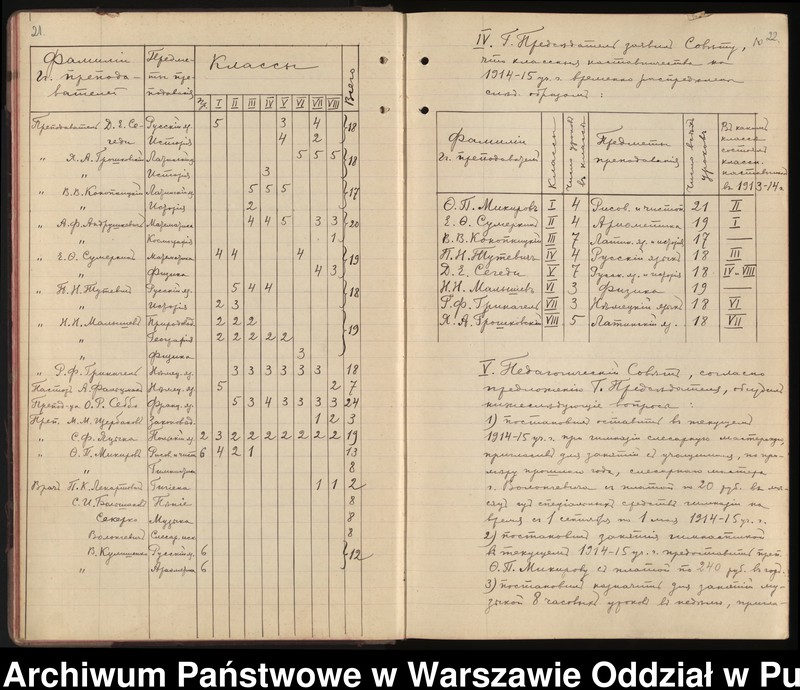 21.
Фамиліи
Гг. препода-
вателей
Предме-
ты пре-
подаванія
Классы
I II III IV V VI VII VIII
Всего
Преподаватель Д. Е. Се- Русскій яз. 5 3 4 18
геди Исторія 4 2
" Я. А. Грошковскій Латинскій яз. 5 5 5 18
" Исторія 3
" В. В. Конопницкій Латинскій яз. 5 5 5 17
" Исторія 2
" А. Ф. Андрушкевичъ Математика 4 4 5 3 3 20
" Космографія 1
" Е. Ѳ. Сумеркинъ Математика 4 4 4 19
" Физика 4 3
" П. Н. Шутевичъ Русскій яз. 5 4 4 18
" Исторія 2 3
" Н. Н. Малышевъ Природов. 2 2 2 19
" Географія 2 2 2 2 2
" Физика 3
" Р. Ф. Тринчель Нѣмец. яз. 3 3 3 3 3 3 18
Пасторъ А. Нѣмец. яз. 5 2 7
Препод-ца О. Р. Француз. яз. 5 3 4 3 3 3 3 24
Преп. М. М. Щербаковъ Законовѣд. 1 2 3
" С. Ф. Польскій яз. 2 3 2 2 2 2 2 2 2 19
" Ѳ. П. Микировъ Рисов. и чист. 6 4 2 1 13
" Гимнастика 8
Врачъ П. К. Гигіена 1 1 2
С. И. Пѣніе 8
Музыка 8
8
В. Русскій яз. 6 12
" Ариѳметика 6
22.
IV. Г. Предсѣдатель заявилъ Совѣту,
что классныя наставничества на
1914-15 уч. г. временно распредѣлены
слѣд. образомъ:
Фамиліи
Гг. преподавателей
Классы
Число уроковъ
въ классѣ
Предметы
преподаванія
Число всѣхъ
уроковъ
Въ какомъ
классѣ
состоялъ
класс.
наставникомъ
въ 1913-14 г.
Ѳ. П. Микировъ I 4 Рисов. и чистоп. 21 II
Е. Ѳ. Сумеркинъ II 4 Ариѳметика 19 I
В. В. Конопницкій III 7 Латин. яз. и исторія 17 —
П. Н. Шутевичъ IV 4 Русскій языкъ 18 III
Д. Е. Сегеди V 7 Русск. яз. и исторія 18 IV-VIII
Н. Н. Малышевъ VI 3 Физика 19 —
Р. Ф. Тринчель VII 3 Нѣмецкій языкъ 18 VI
Я. А. Грошковскій VIII 5 Латинскій яз. 18 VII
V. Педагогическій Совѣтъ, согласно
предложенію Г. Предсѣдателя, обсудилъ
нижеслѣдующіе вопросы:
1) постановилъ оставить въ текущемъ
1914-15 уч. г. при гимназіи слесарную мастерскую,
пригласивъ для занятій съ учащимися, по при-
мѣру прошлаго года, слесарнаго мастера
г. Волоткевича съ платой по 20 руб. въ мѣ-
сяцъ изъ спеціальныхъ средствъ гимназіи на
время съ 1 сентября по 1 мая 1914-15 уч. г.
2) постановилъ занятія гимнастикой
въ текущемъ 1914-15 уч. г. предоставить преп.
Ѳ. П. Микирову съ платой по 240 руб. въ годъ.
3) постановилъ назначить для занятій му-
зыкой 8 часовыхъ уроковъ въ недѣлю, пригла-
Archiwum Państwowe w Warszawie Oddział w Pu